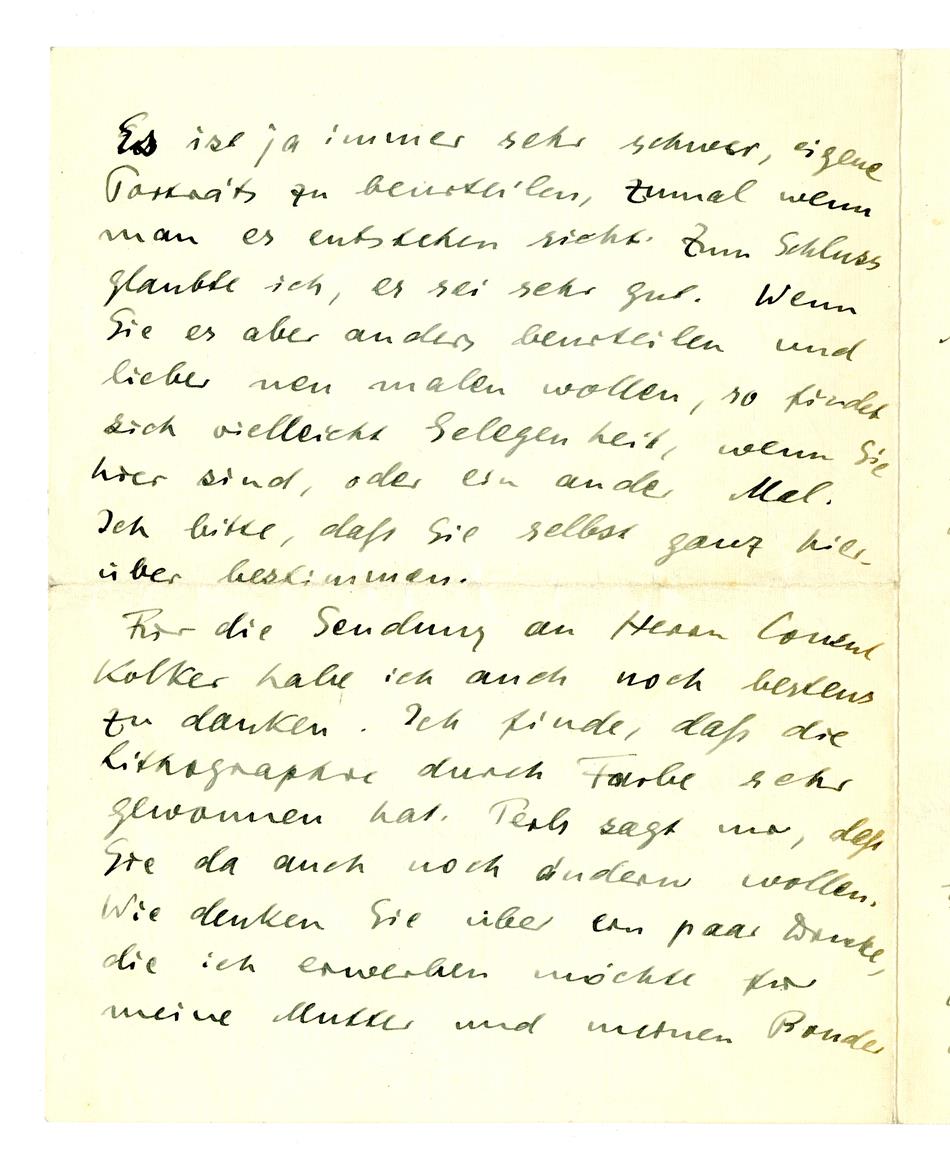 Es ist ja immer sehr schwer, eigene
Porträts zu beurteilen, zumal wenn
man es entstehen sieht. Zum Schluss
glaubte ich, es sei sehr gut. Wenn
Sie es aber anders beurteilen und
lieber neu malen wollen, so findet
sich vielleicht Gelegenheit, wenn Sie
hier sind, oder ein ander Mal.
Ich bitte, daß Sie selbst ganz hier-
über bestimmen.
Für die Sendung an Herrn Consul
Kolker habe ich auch noch bestens
zu danken. Ich finde, daß die
Lithographie durch Farbe sehr
gewonnen hat. Perls sagt mir, daß
Sie da auch noch ändern wollen.
Wie denken Sie über ein paar Drucke,
die ich erwerben möchte für
meine Mutter und meinen Bruder